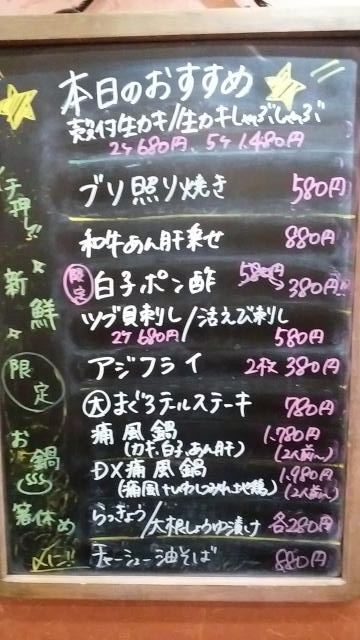 本日のおすすめ
殻付生カキ/生カキしゃぶしゃぶ
2ケ680円、5ケ1,480円
チ押し!!
ブリ照り焼き 580円
和牛あん肝乗せ 880円
新鮮
限定 白子ポン酢 580円 380円
ツブ貝刺し/活えび刺し
2ケ680円 580円
限定
アジフライ 2枚380円
大まぐろテールステーキ 780円
お鍋
痛風鍋 1,780円
(カキ、白子、あん肝) (2人前〜)
DX痛風鍋 1,980円
(痛風+いわしつみれ、地鶏) (2人前〜)
箸休め
らっきょう/大根しょうゆ漬け 各280円
〆に!! チャーシュー油そば 880円